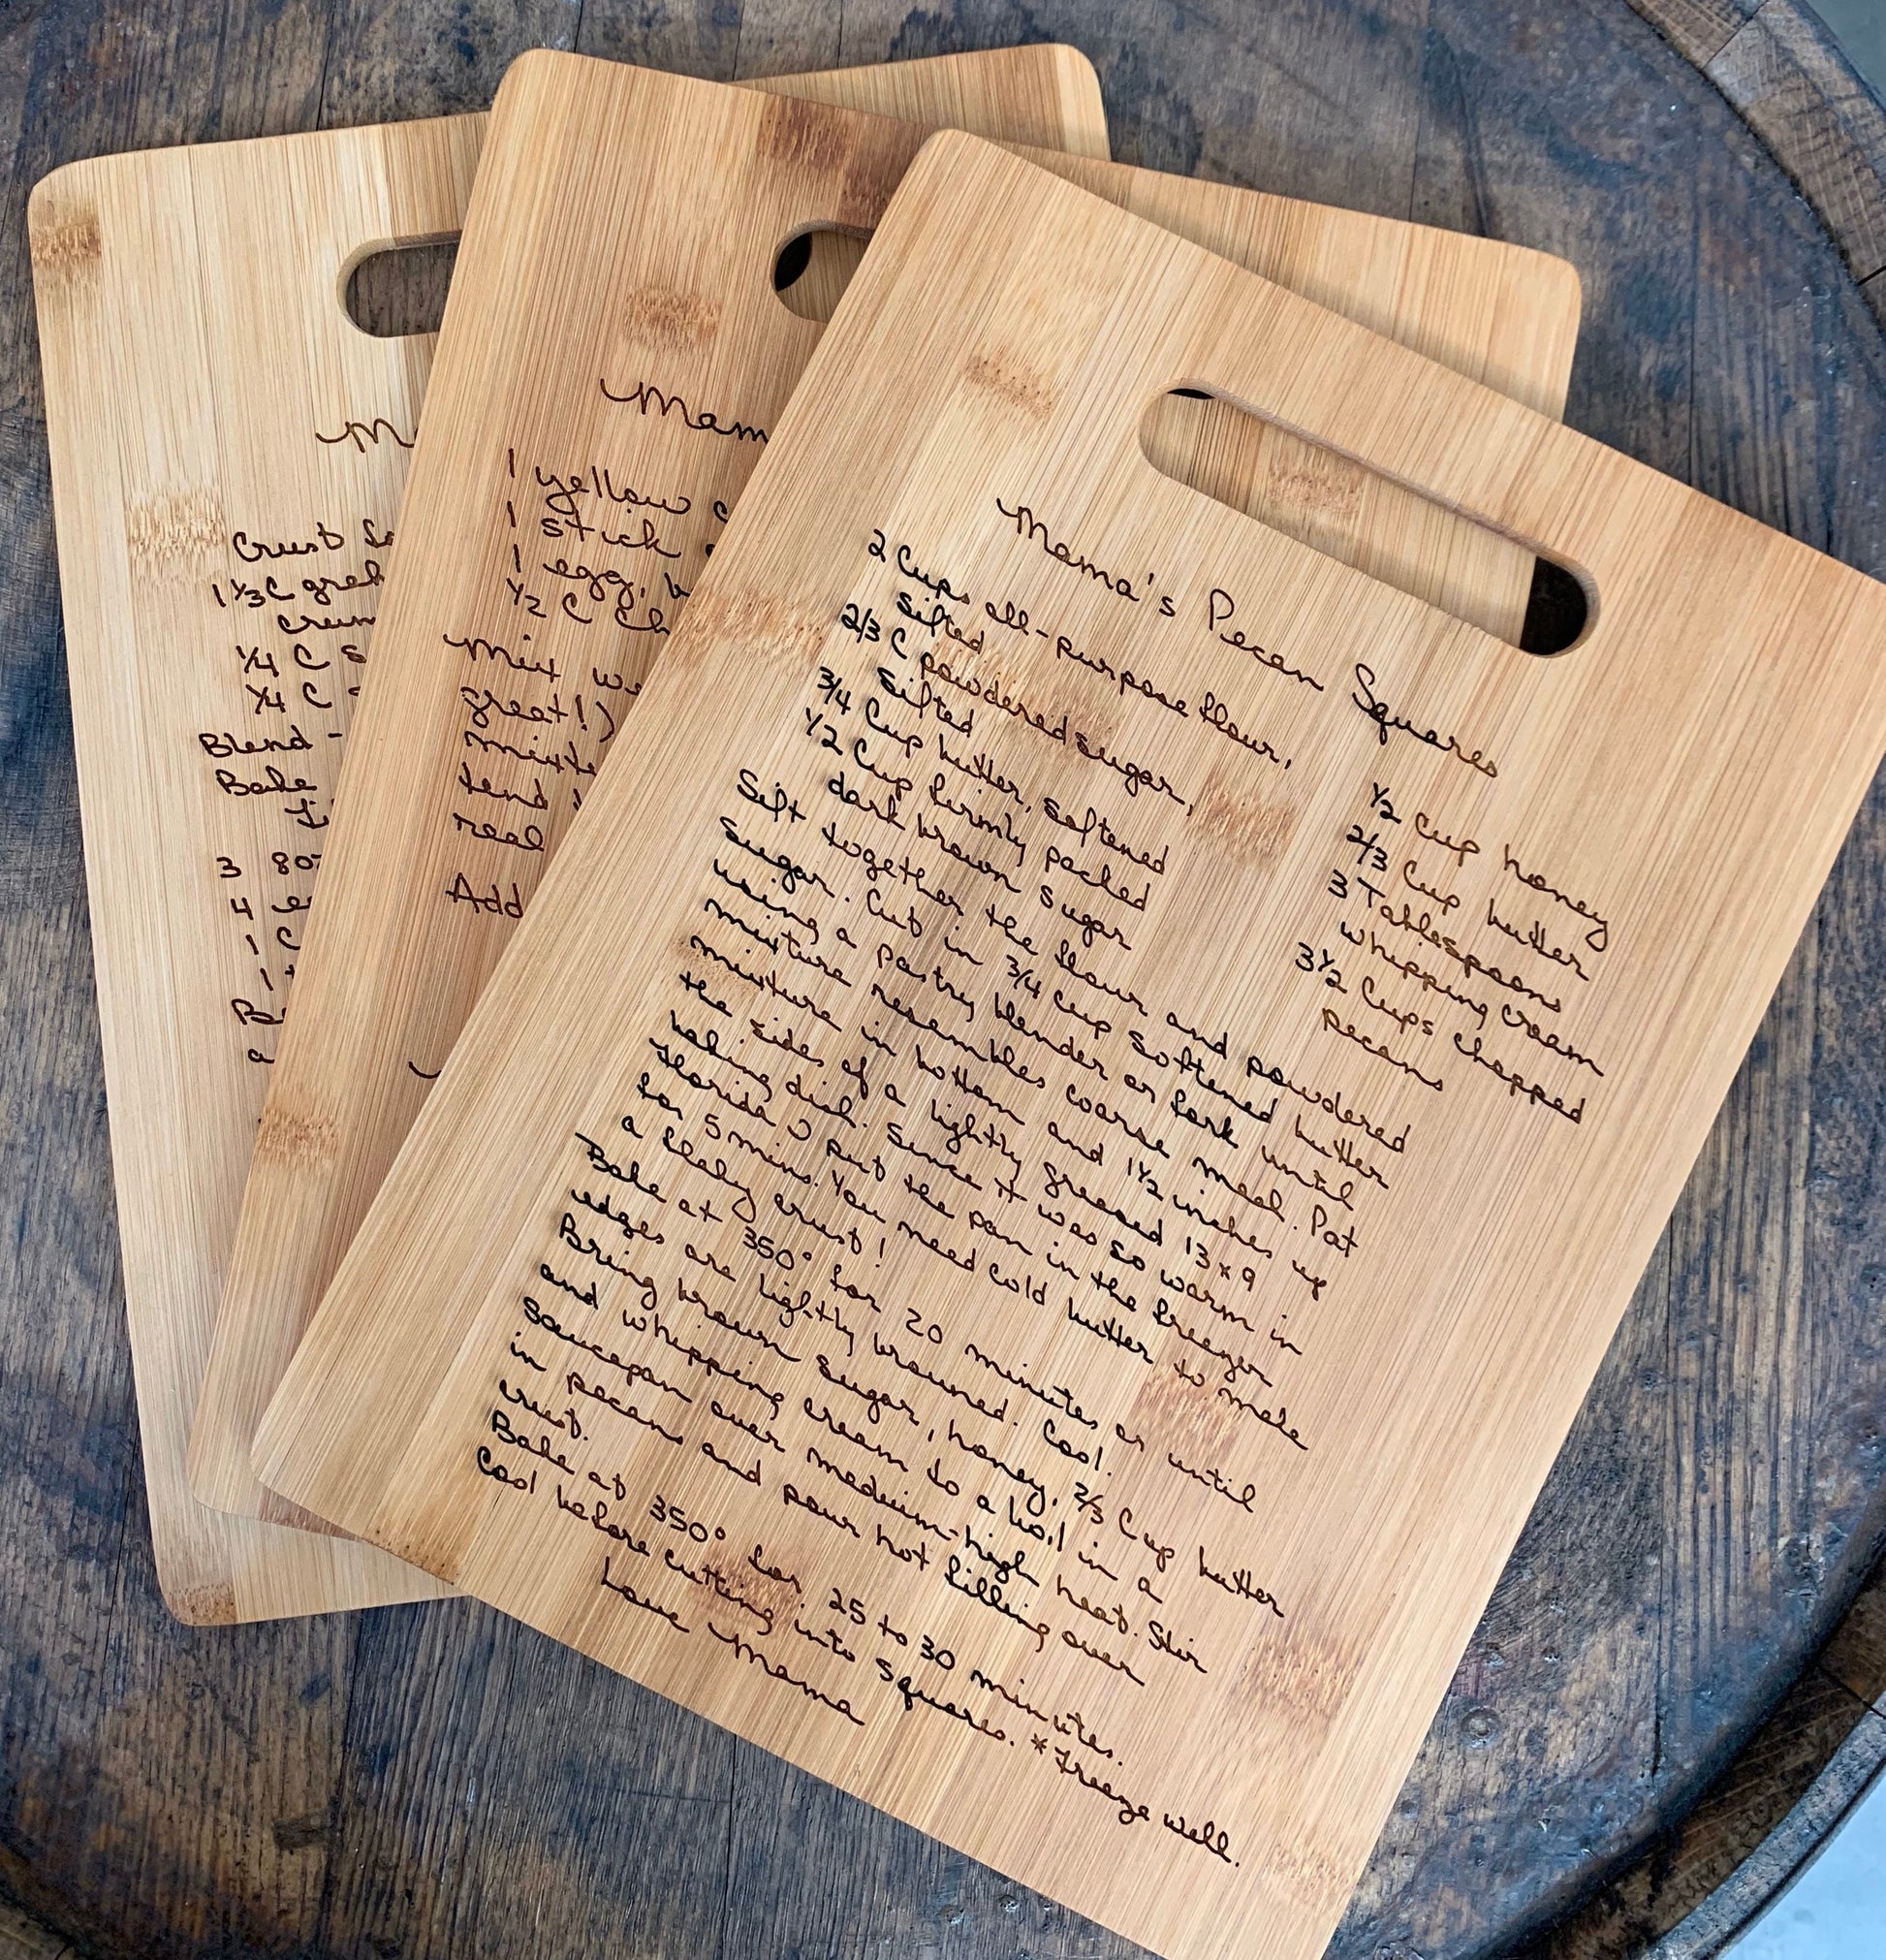 M
Crust
1 1/3 C
1/4 C
1/4 C
Blend -
Bake
3 8oz
4
1 C
1
a
Mam
1 yellow
1 stick
1 egg,
1/2 C Ch
Mix
great!)
tend
real
Add
Mama's Pecan Squares
2 Cups all-purpose flour,
sifted
2/3 C powdered sugar,
sifted
3/4 Cup butter, softened
1/2 Cup firmly packed
dark brown sugar
1/2 Cup honey
2/3 Cup butter
3 Tablespoons
whipping cream
3 1/2 Cups chopped
Pecans
Sift together the flour and powdered
sugar. Cut in 3/4 cup softened butter
using a pastry blender or fork until
mixture resembles coarse meal. Pat
mixture in bottom and 1 1/2 inches up
the sides of a lightly greased 13x9
baking dish. Since it was so warm in
Florida I put the pan in the freezer
for 5 mins. You need cold butter to make
a flaky crust!
Bake at 350° for 20 minutes or until
edges are lightly browned. Cool.
Bring brown sugar, honey, 2/3 Cup butter
and whipping cream to a boil in a
Saucepan over medium-high heat. Stir
in pecans and pour hot filling over
crust.
Bake at 350° for 25 to 30 minutes.
Cool before cutting into squares. *Freeze well.
Love Mama